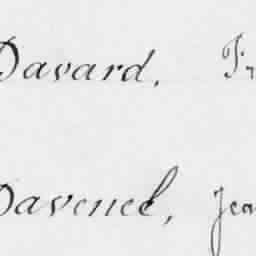 Davard, Fr
Davenel, Jea